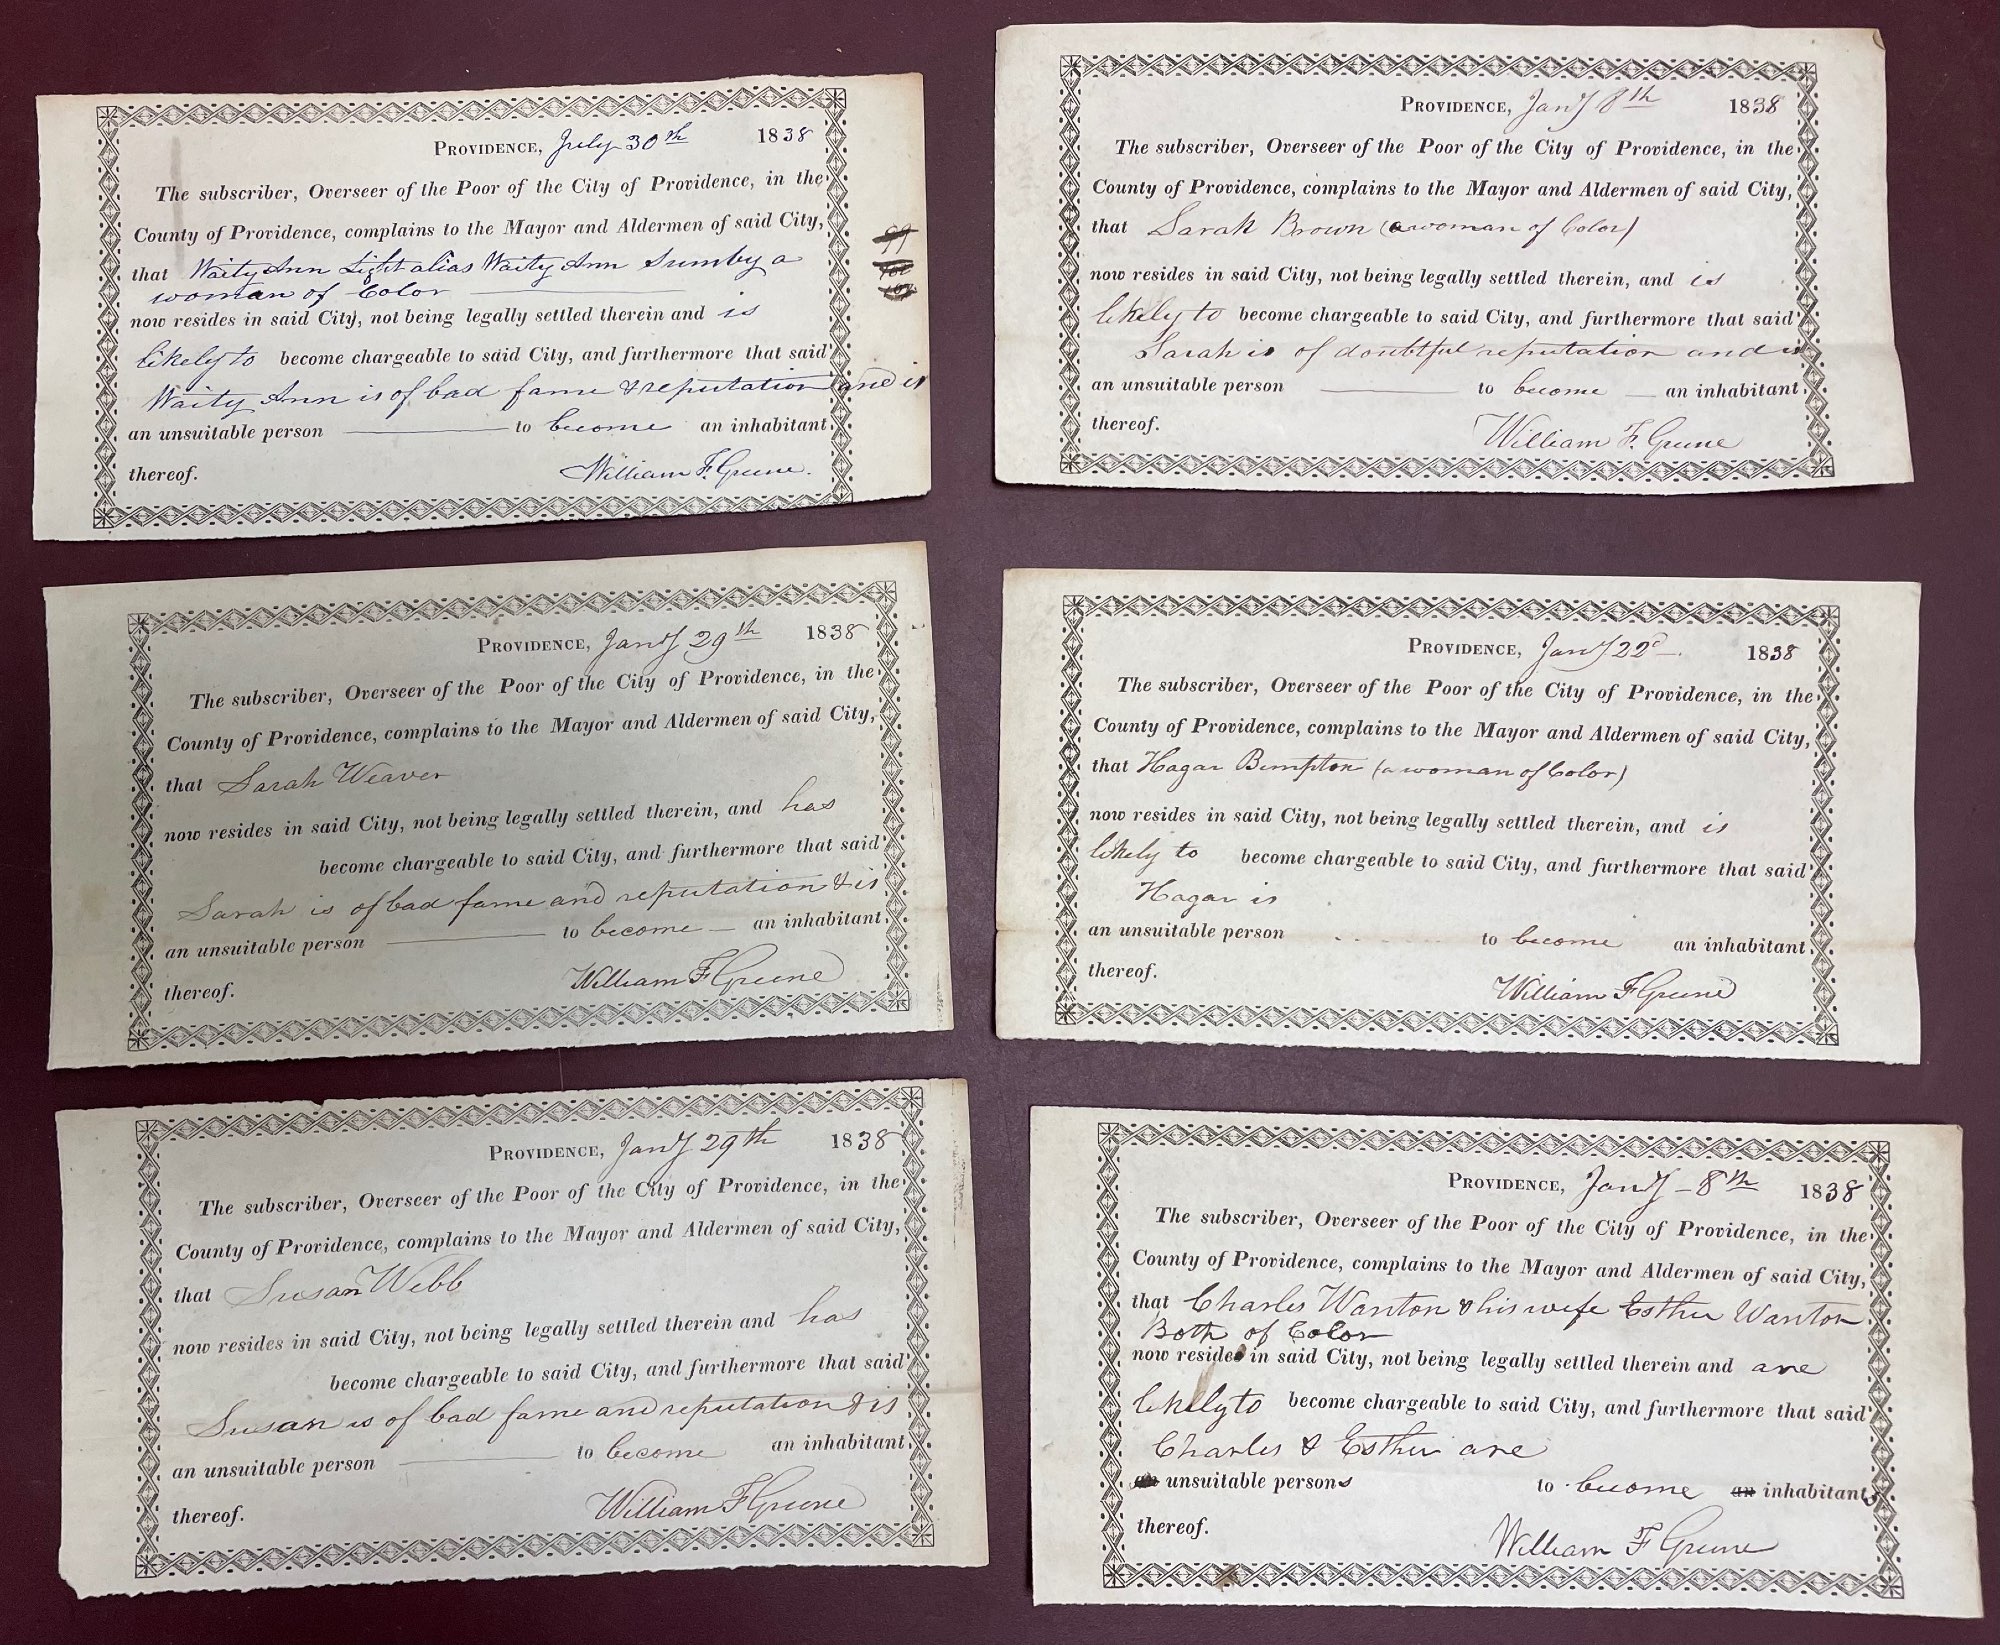 PROVIDENCE, July 30th 1838
The subscriber, Overseer of the Poor of the City of Providence, in the
County of Providence, complains to the Mayor and Aldermen of said City,
that Waity Ann Light alias Waity Ann Sumby a
woman of Color
now resides in said City, not being legally settled therein and is
likely to become chargeable to said City, and furthermore that said
Waity Ann is of bad fame & reputation and is
an unsuitable person to become an inhabitant
thereof.
William F. Greene.
PROVIDENCE, Jany 8th 1838
The subscriber, Overseer of the Poor of the City of Providence, in the
County of Providence, complains to the Mayor and Aldermen of said City,
that Sarah Brown (a woman of Color)
now resides in said City, not being legally settled therein, and is
likely to become chargeable to said City, and furthermore that said
Sarah is of doubtful reputation and is
an unsuitable person to become an inhabitant
thereof.
William F. Greene
PROVIDENCE, Jany 29th 1838
The subscriber, Overseer of the Poor of the City of Providence, in the
County of Providence, complains to the Mayor and Aldermen of said City,
that Sarah Weaver
now resides in said City, not being legally settled therein, and has
become chargeable to said City, and furthermore that said
Sarah is of bad fame and reputation & is
an unsuitable person to become an inhabitant
thereof.
William F Greene
PROVIDENCE, Jany 22d 1838
The subscriber, Overseer of the Poor of the City of Providence, in the
County of Providence, complains to the Mayor and Aldermen of said City,
that Hagar Bumpton (a woman of Color)
now resides in said City, not being legally settled therein, and is
likely to become chargeable to said City, and furthermore that said
Hagar is
an unsuitable person to become an inhabitant
thereof.
William F Greene
PROVIDENCE, Jany 29th 1838
The subscriber, Overseer of the Poor of the City of Providence, in the
County of Providence, complains to the Mayor and Aldermen of said City,
that Susan Webb
now resides in said City, not being legally settled therein and has
become chargeable to said City, and furthermore that said
Susan is of bad fame and reputation & is
an unsuitable person to become an inhabitant
thereof.
William F Greene
PROVIDENCE, Jany 8th 1838
The subscriber, Overseer of the Poor of the City of Providence, in the
County of Providence, complains to the Mayor and Aldermen of said City,
that Charles Wanton & his wife Esther Wanton
Both of Color
now reside in said City, not being legally settled therein and are
likely to become chargeable to said City, and furthermore that said
Charles & Esther are
an unsuitable persons to become an inhabitants
thereof.
William F Greene